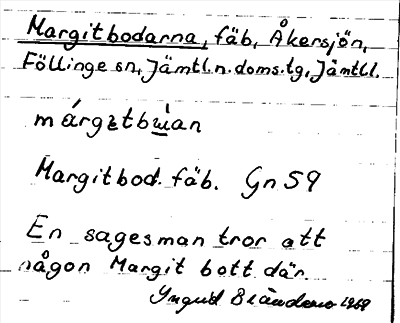 Margitbodarna, fäb, Åkersjön,
Föllinge sn, Jämtl.n.doms.tg, Jämtl.l.
márgıtbu̇an
Margitbod. fäb. Gn 59
En sagesman tror att
någon Margit bott där.
1969